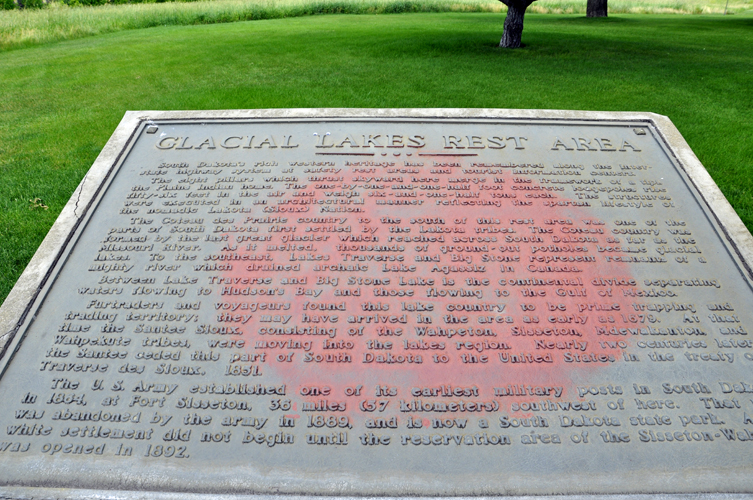 GLACIAL LAKES REST AREA
South Dakota's rich western heritage has been remembered along the inter-
state highway system at safety rest areas and tourist information centers.
The eight pillars which thrust skyward here merge in the framework of a tipi,
the Plains Indian home. The one-by-one-and-one-half foot concrete lodgepoles rise
fifty-six feet in the air and weigh six-and-one-half tons each. The structures
were executed in an architectural manner reflecting the spartan lifestyle of
the nomadic Lakota (Sioux) Nation.
The Coteau des Prairie country to the south of this rest area was one of the
parts of South Dakota first settled by the Dakota tribes. The Coteau country was
formed by the last great glacier which reached across South Dakota as far as the
Missouri River. As it melted, thousands of ground-out potholes became glacial
lakes. To the southeast, Lakes Traverse and Big Stone represent remnants of a
mighty river which drained archaic Lake Agassiz in Canada.
Between Lake Traverse and Big Stone Lake is the continental divide separating
waters flowing to Hudson's Bay and those flowing to the Gulf of Mexico.
Furtraders and voyageurs found this lake country to be prime trapping and
trading territory; they may have arrived in the area as early as 1679. At that
time the Santee Sioux, consisting of the Wahpeton, Sisseton, Mdewakanton and
Wahpekute tribes, were moving into the lakes region. Nearly two centuries later
the Santee ceded this part of South Dakota to the United States in the treaty of
Traverse des Sioux, 1851.
The U.S. Army established one of its earliest military posts in South Da
in 1864, at Fort Sisseton, 36 miles (57 kilometers) southwest of here. That
was abandoned by the army in 1889, and is now a South Dakota state park.
white settlement did not begin until the reservation area of the Sisseton-Wa
was opened in 1892.